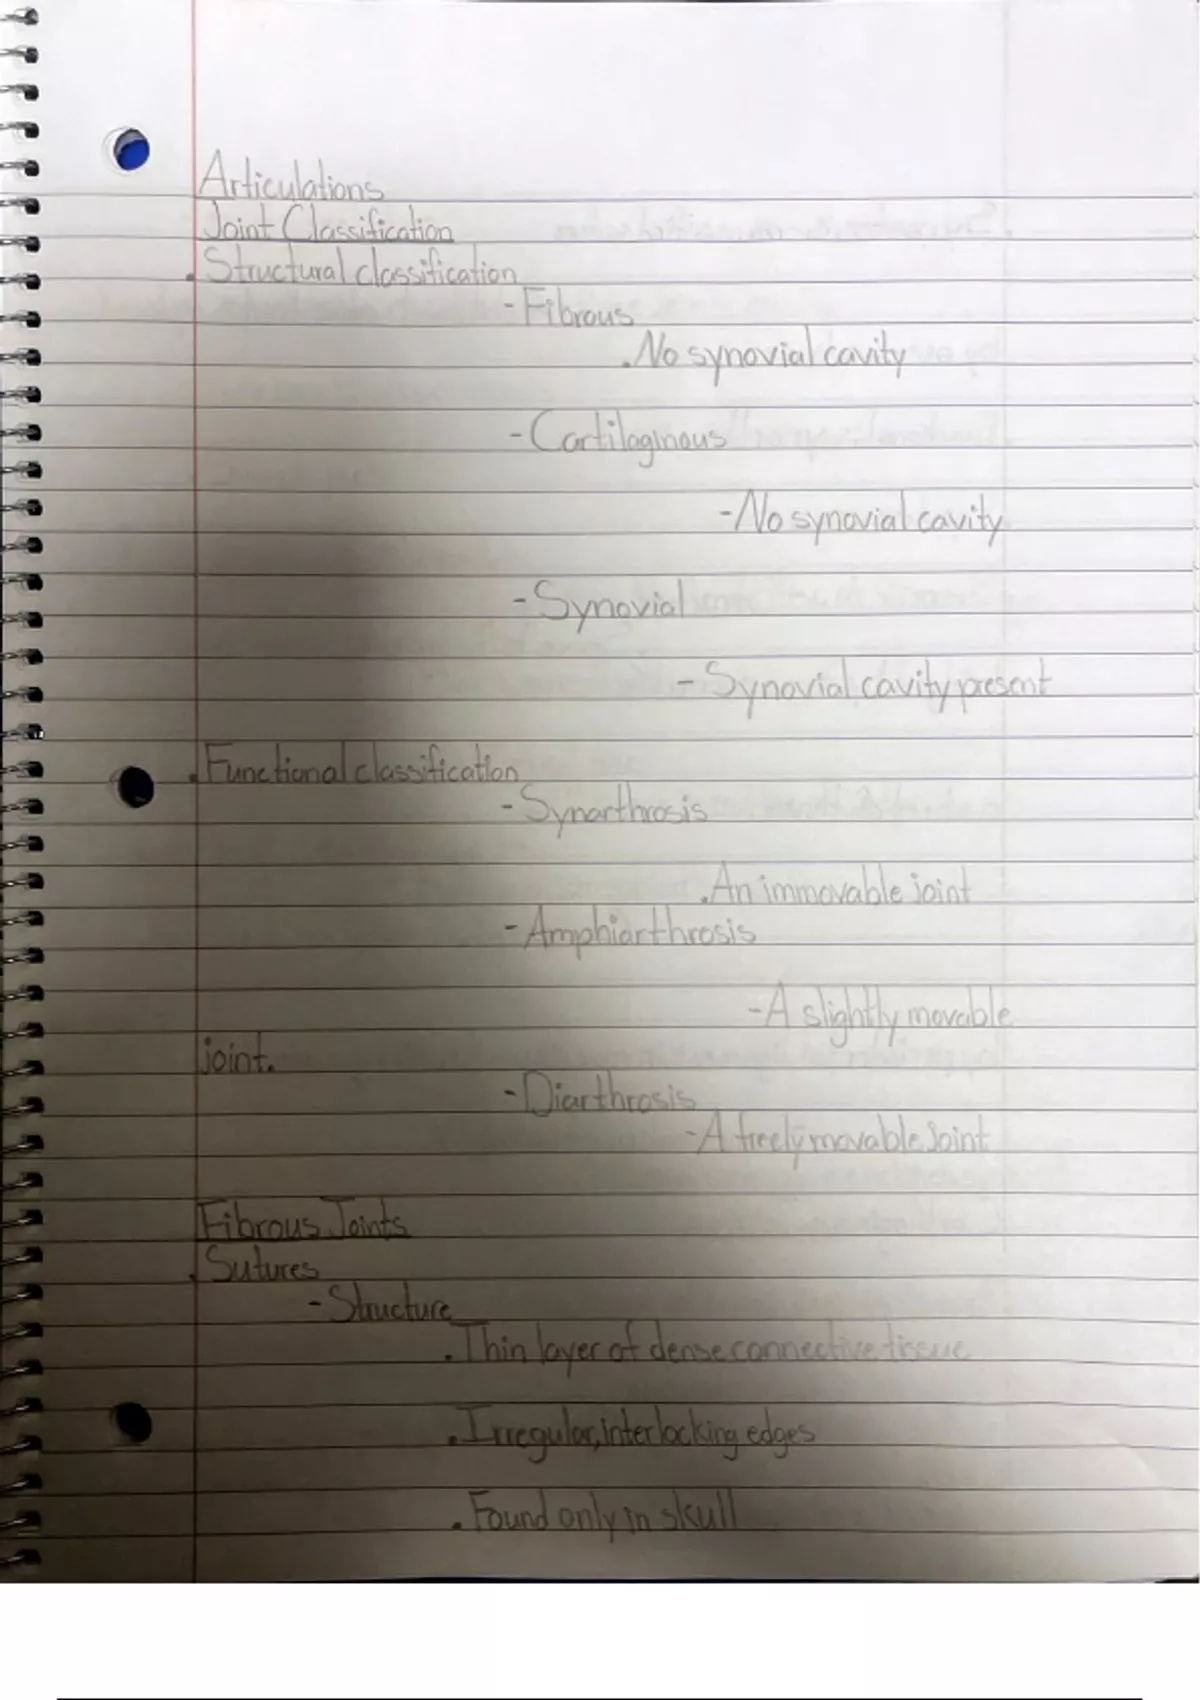 Articulations
Joint Classification
. Structural classification
- Fibrous
. No synovial cavity
- Cartilaginous
- No synovial cavity
- Synovial
- Synovial cavity present
. Functional classification
- Synarthrosis
. An immovable joint
- Amphiarthrosis
- A slightly movable
joint.
- Diarthrosis
- A freely movable Joint
Fibrous Joints
. Sutures
- Structure
. Thin layer of dense connective tissue
. Irregular, interlocking edges
. Found only in skull